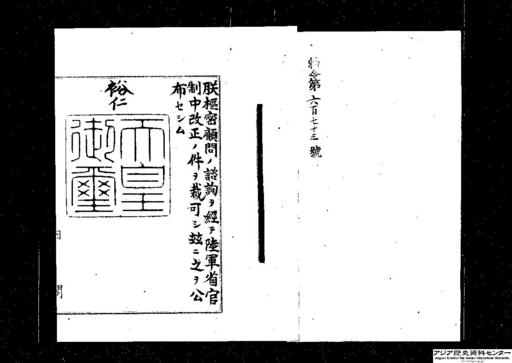 勅令第六百七十三號
朕樞密顧問ノ諮詢ヲ經テ陸軍省官
制中改正ノ件ヲ裁可シ玆ニ之ヲ公
布セシム
裕仁
天皇
御璽
内閣
アジア歴史資料センター
Japan Center for Asian Historical Records